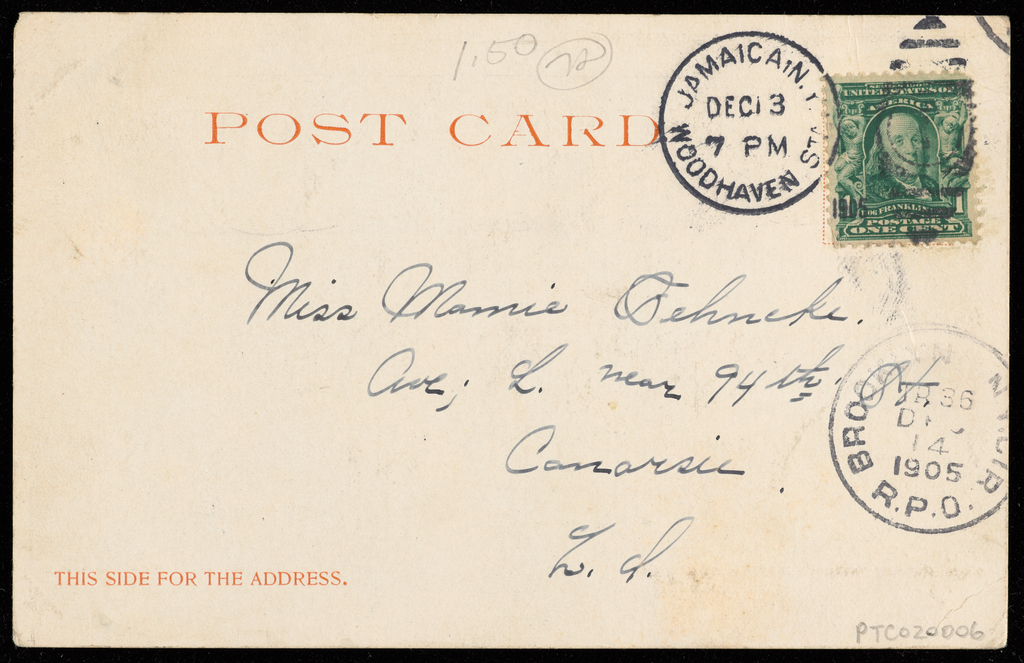 1.50
POST CARD
JAMAICA, N.Y.
DEC 13
7 PM
WOODHAVEN STA.
SERIES 1902
UNITED STATES OF
AMERICA
1905
FRANKLIN
1
POSTAGE
ONE CENT
Miss Mamie Fehncke.
Ave; L. near 94th; St,
Canarsie
L. I.
BROOKLYN N.Y. CIR
TR 36
14
1905
R.P.O.
THIS SIDE FOR THE ADDRESS.
PTC020006